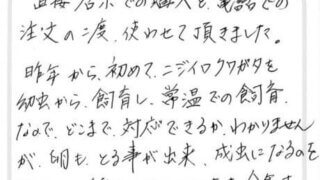 直接店示での購入と、電話での
注文の二度、使わせて頂きました。
昨年から、初めて、ニジイロクワガタを
幼虫から、飼育し、常温での飼育
なので、どこまで、対応できるか、わかりません
が、卵も、とる事が出来、成虫になるのを